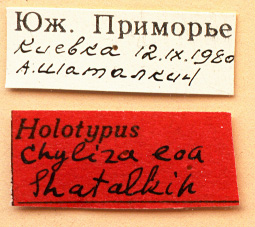 Юж. Приморье
Киевка 12.IX.1980
А.Шаталкин
Holotypus
Chyliza eoa
Shatalkin